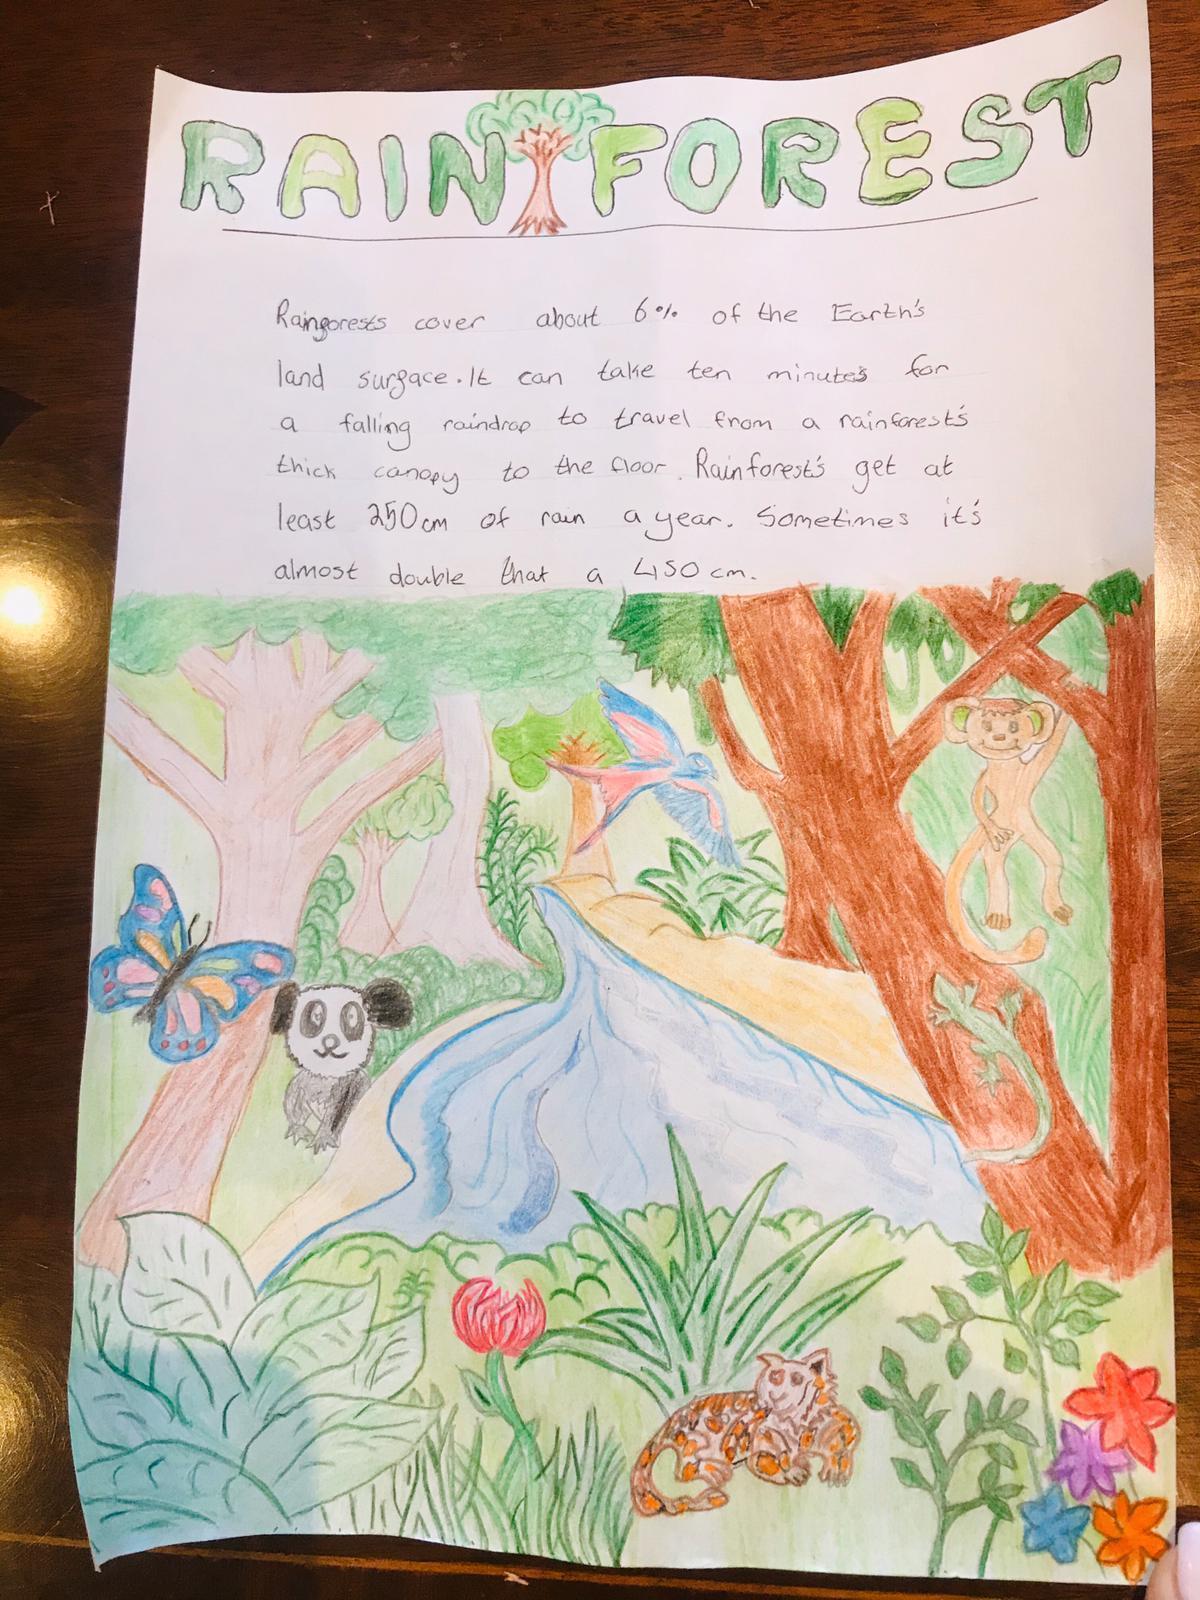 RAINFOREST
Rainforests cover about 6% of the Earth's
land surface. It can take ten minutes for
a falling raindrop to travel from a rainforest's
thick canopy to the floor. Rainforest's get at
least 250cm of rain a year. Sometimes it's
almost double that a 450 cm.